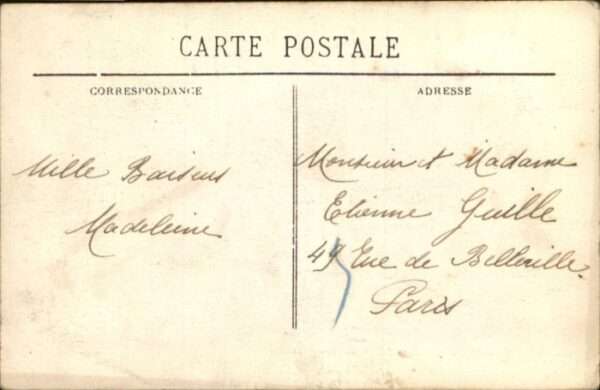 CARTE POSTALE
CORRESPONDANCE
ADRESSE
Mille Baisers
Madeleine
Monsieur et Madame
Etienne Guille
49 Rue de Belleville.
Paris